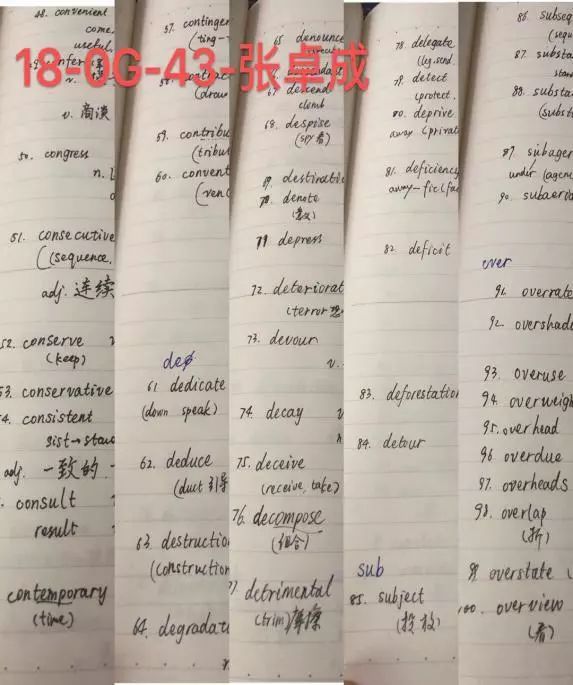 18-GG-43-张卓成
48. convenient
come
useful
v. 商谈
50. congress
n.
51. consecutive
(sequence
adj. 连续
52. conserve
(keep)
53. conservative
54. consistent
sist→stand
adj. 一致的
consult
result
contemporary
(time)
57. contingen
(ting
59. contribu
(tribut
60. convent
(ven
de
61 dedicate
(down speak)
62. deduce
(duct 引导
63. destruction
(construction
64. degradat
65 denounce
67. descend
climb
68. despise
(spi 看)
69. destinatio
70. denote
71 depress
72. deteriorat
(terror 恐
73. devour
v.
74. decay
75. deceive
(receive, take)
76. decompose
(组合)
77. detrimental
(trim)
78. delegate
(leg. send
79. detect
(protect.
80. deprive
away (privat
81. deficiency
away-fic(fac
82. deficit
83. deforestation
84. detour
sub
85. subject
(投
86. subseq
(sequ
87. substa
stan
88. substa
(subst
89 subagen
under (agenc
90. subaeria
over
91. overrate
92. overshado
93. overuse
94. overweigh
95. overhead
96 overdue
97. overheads
98. overlap
(折)
99 overstate
100. overview
(看)